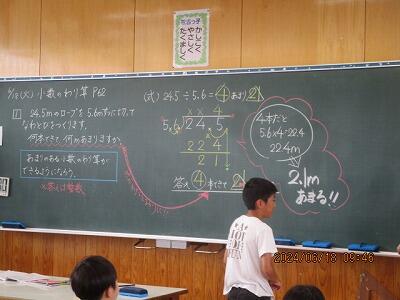 花立っ子
かしこく
やさしく
たくましく
6/18(火) 小数のわり算 P62
1 24.5mのロープを5.6mずつに切って
なわとびをつくります。
何本できて、何mあまりますか。
あまりのある小数のわり算が
できるようになろう。
※答えは整数
(式) 24.5÷5.6=4あまり2.1
4
5.6)24.5
224
21
答え 4本できて 2.1
4本だと
5.6×4=22.4
22.4m
2.1m
あまる!!
2024/06/18 09:46